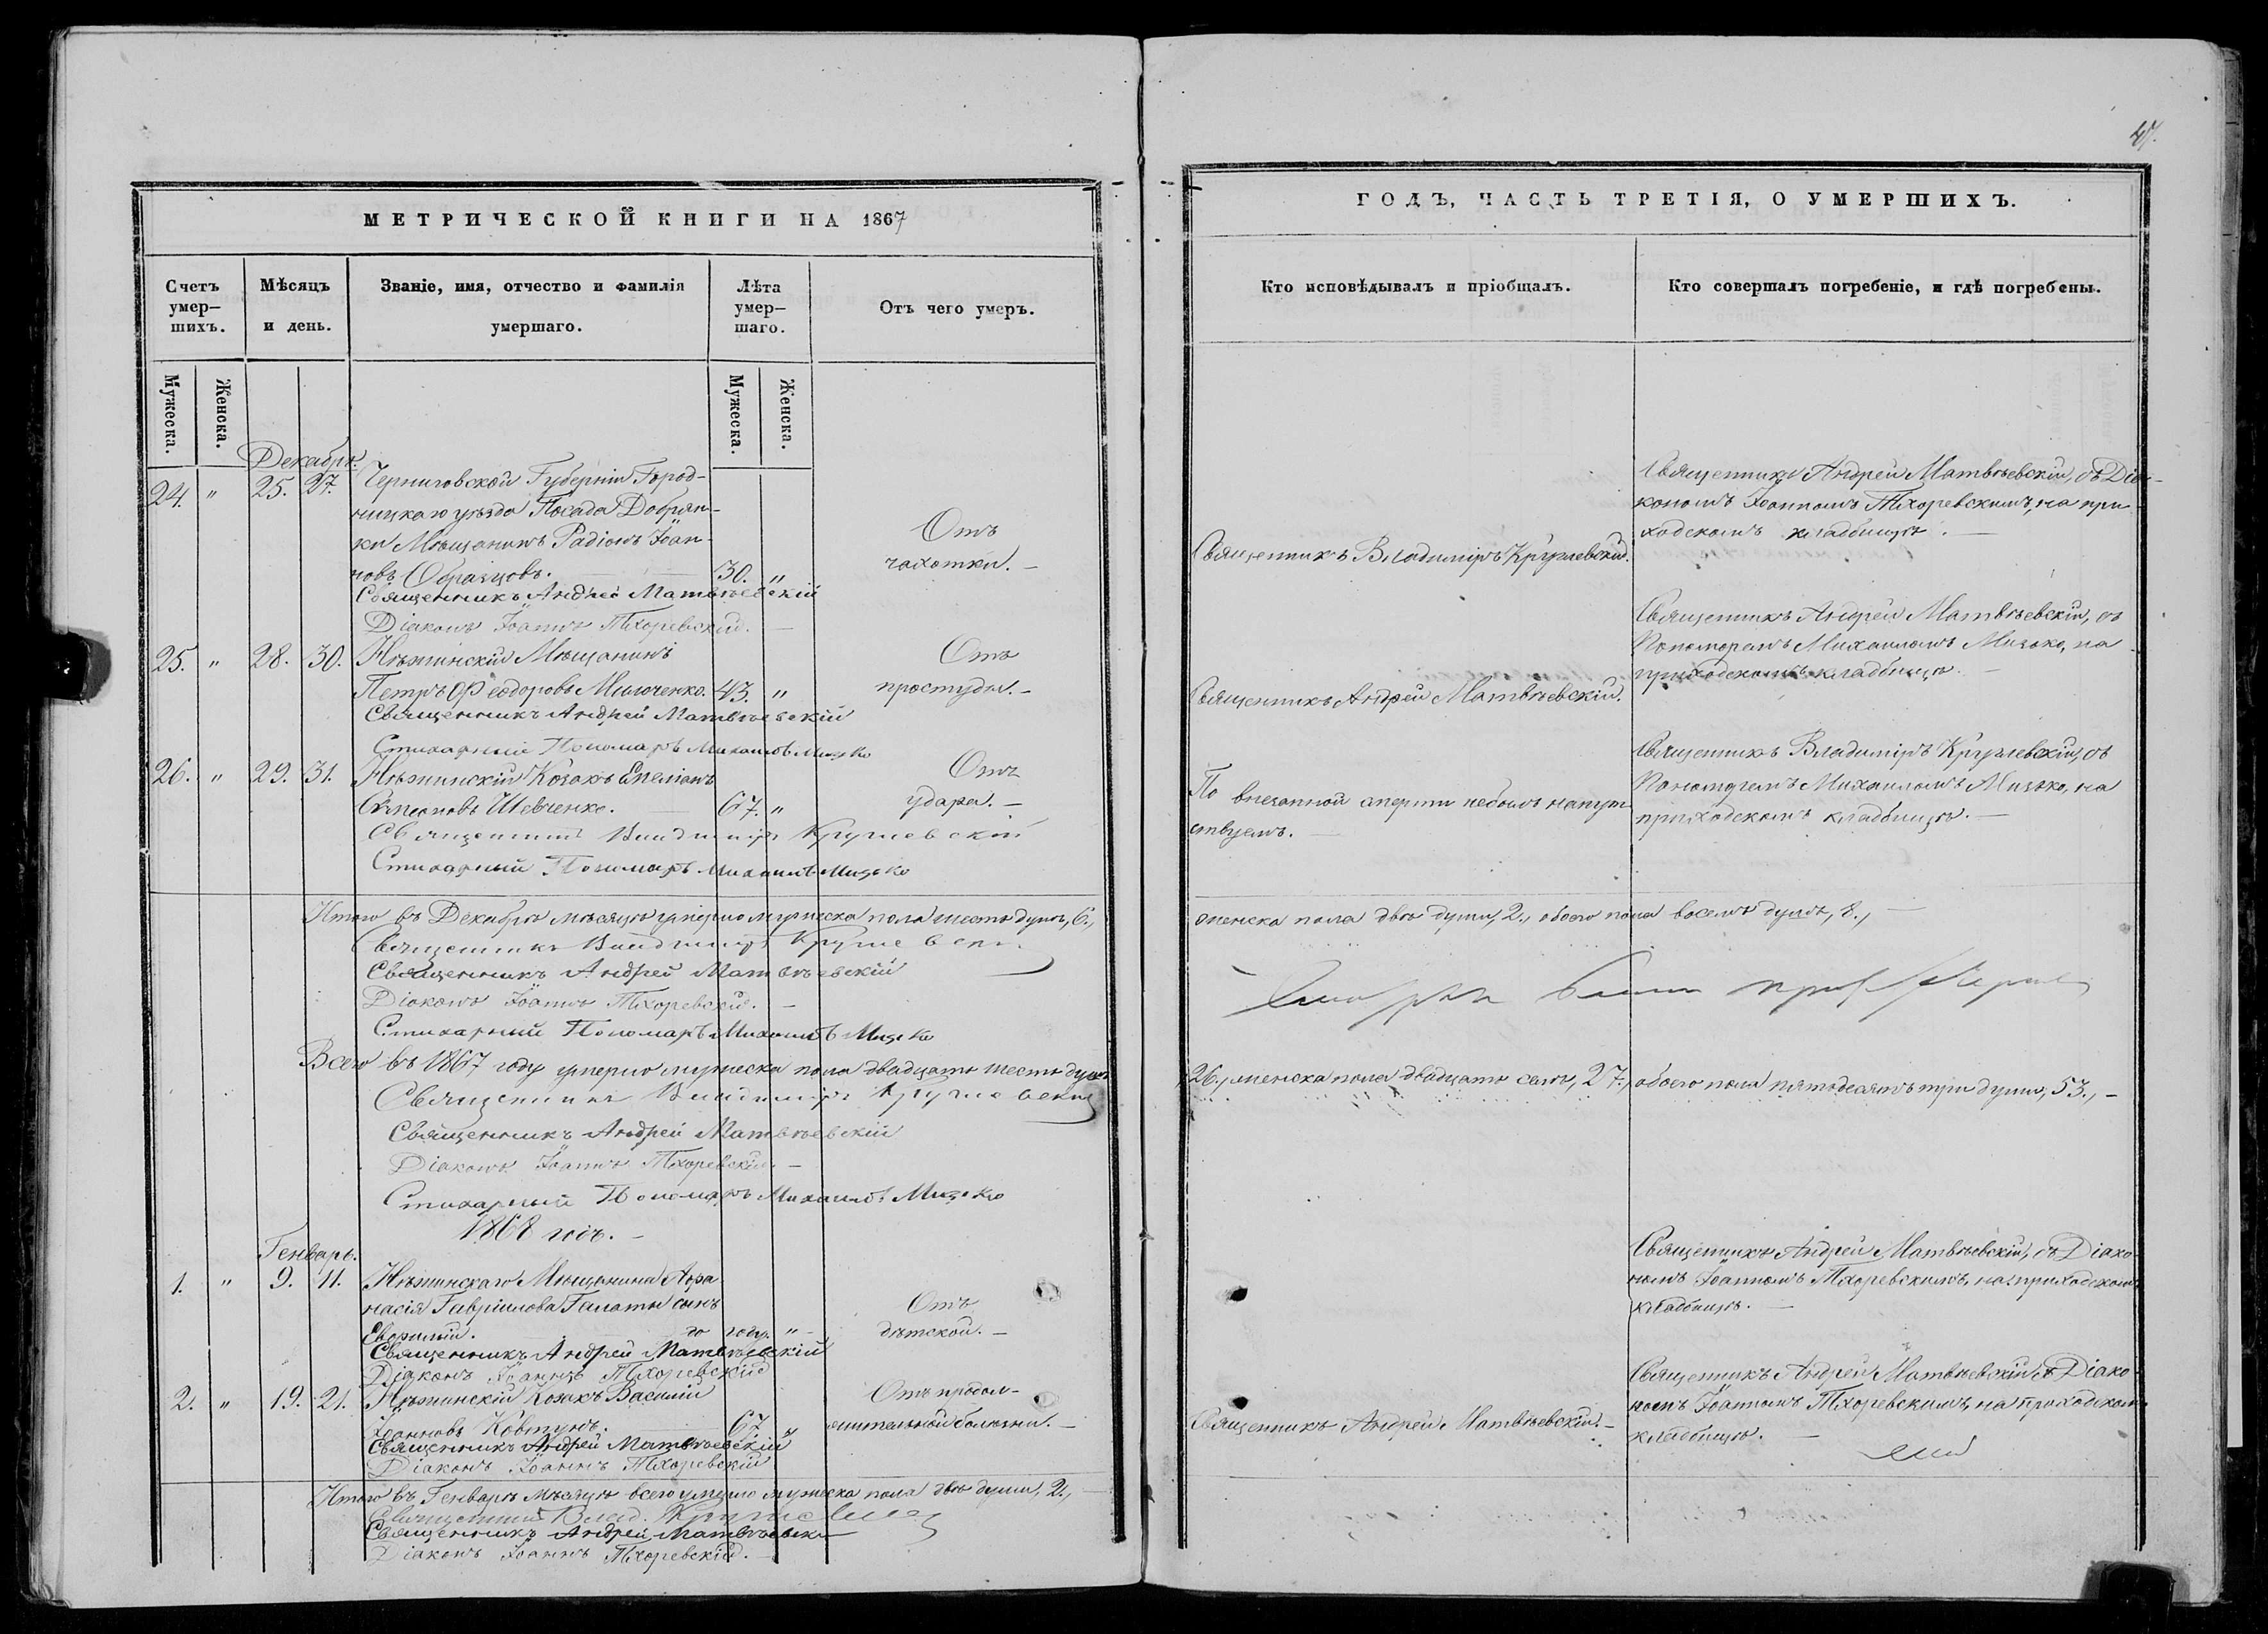 47.
МЕТРИЧЕСКОЙ КНИГИ НА 1867
Счетъ умер–шихъ.
Мѣсяцъ и день.
Званіе, имя, отчество и фамилія умершаго.
Лѣта умер–шаго.
Отъ чего умеръ.
Мужеска.
Женска.
Мужеска.
Женска.
Декабрь.
24. " 25. 27. Черниговской Губерніи Город-
ницкаго уѣзда Посада Добрян-
ки Мѣщанинъ Радіонъ Іоан-
новъ Образцовъ. 30. "
Отъ
чахотки.
Священникъ Андрей Матвѣевскій
Діаконъ Іоаннъ Тхоревскій.
25. " 28. 30. Нѣжинскій Мѣщанинъ
Петръ Ѳеодоровъ 43. "
Отъ
простуды.
Священникъ Андрей Матвѣевскій
Стихарный Пономарь Михаилъ Мизько
26. " 29. 31. Нѣжинскій Козакъ Емеліанъ
Симеоновъ Шевченко. 67. "
Отъ
удара.
Священникъ Владиміръ
Стихарный Пономарь Михаилъ Мизько
Итого въ Декабрѣ мѣсяцѣ умерло мужеска пола шесть душъ, 6.,
Священникъ Владиміръ
Священникъ Андрей Матвѣевскій
Діаконъ Іоаннъ Тхоревскій.
Стихарный Пономарь Михаилъ Мизько
Всего въ 1867 году умерло мужеска пола двадцать шесть душъ
Священникъ Владиміръ
Священникъ Андрей Матвѣевскій
Діаконъ Іоаннъ Тхоревскій
Стихарный Пономарь Михаилъ Мизько
1868 годъ.
Генварь.
1. " 9. 11. Нѣжинскаго Мѣщанина Аѳа-
насія Гавріилова Галаты сынъ
Евѳимій. до году. "
Отъ
дѣтской.
Священникъ Андрей Матвѣевскій
Діаконъ Іоаннъ Тхоревскій
2. " 19. 21. Нѣжинскій Козакъ Василій
Іоанновъ Ковтунъ. 67. "
Отъ продол-
жительной болѣзни.
Священникъ Андрей Матвѣевскій
Діаконъ Іоаннъ Тхоревскій
Итого въ Генварѣ мѣсяцѣ всего умерло мужеска пола двѣ души, 2.,
Священникъ Влад.
Священникъ Андрей Матвѣевск
Діаконъ Іоаннъ Тхоревскій.
ГОДЪ, ЧАСТЬ ТРЕТІЯ, О УМЕРШИХЪ.
Кто исповѣдывалъ и пріобщалъ.
Кто совершалъ погребеніе, и гдѣ погребены.
Священникъ Владиміръ
Священникъ Андрей Матвѣевскій, съ Діа-
кономъ Іоанномъ Тхоревскимъ, на при-
ходскомъ кладбищѣ.
Священникъ Андрей Матвѣевскій.
Священникъ Андрей Матвѣевскій, съ
Пономаремъ Михаиломъ Мизько, на
приходскомъ кладбищѣ.
По внезапной смерти небылъ напут-
ствуемъ.
Священникъ Владиміръ съ
Пономаремъ Михаиломъ Мизько, на
приходскомъ кладбищѣ.
женска пола двѣ души, 2., обоего пола восемь душъ, 8.,
26., женска пола двадцать семь, 27., обоего пола пятьдесятъ три души, 53.,
Священникъ Андрей Матвѣевскій, съ Діако-
номъ Іоанномъ Тхоревскимъ, на приходскомъ
кладбищѣ.
Священникъ Андрей Матвѣевскій.
Священникъ Андрей Матвѣевскій съ Діако-
номъ Іоанномъ Тхоревскимъ, на приходскомъ
кладбищѣ.